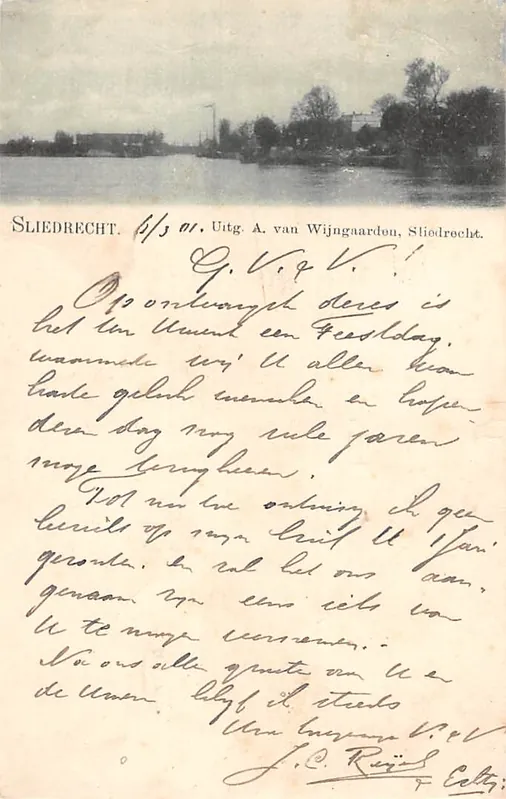 SLIEDRECHT. 6/3 01. Uitg. A. van Wijngaarden, Sliedrecht.
G. V. & V. !
Op ontvangst dezes is
het ten Uwent een Feestdag,
waarmede wij U allen van
harte geluk wenschen en hopen
dezen dag nog vele jaren
moge terugkeeren.
Tot nu toe ontving ik geen
bericht op mijn brief U 1 Jan
gezonden. en zal het ons aan-
genaam zijn eens iets van
U te mogen vernemen.-
Na ons aller groete aan U en
de Uwen, blijf ik steeds
Uw V. & V
J. C.
&